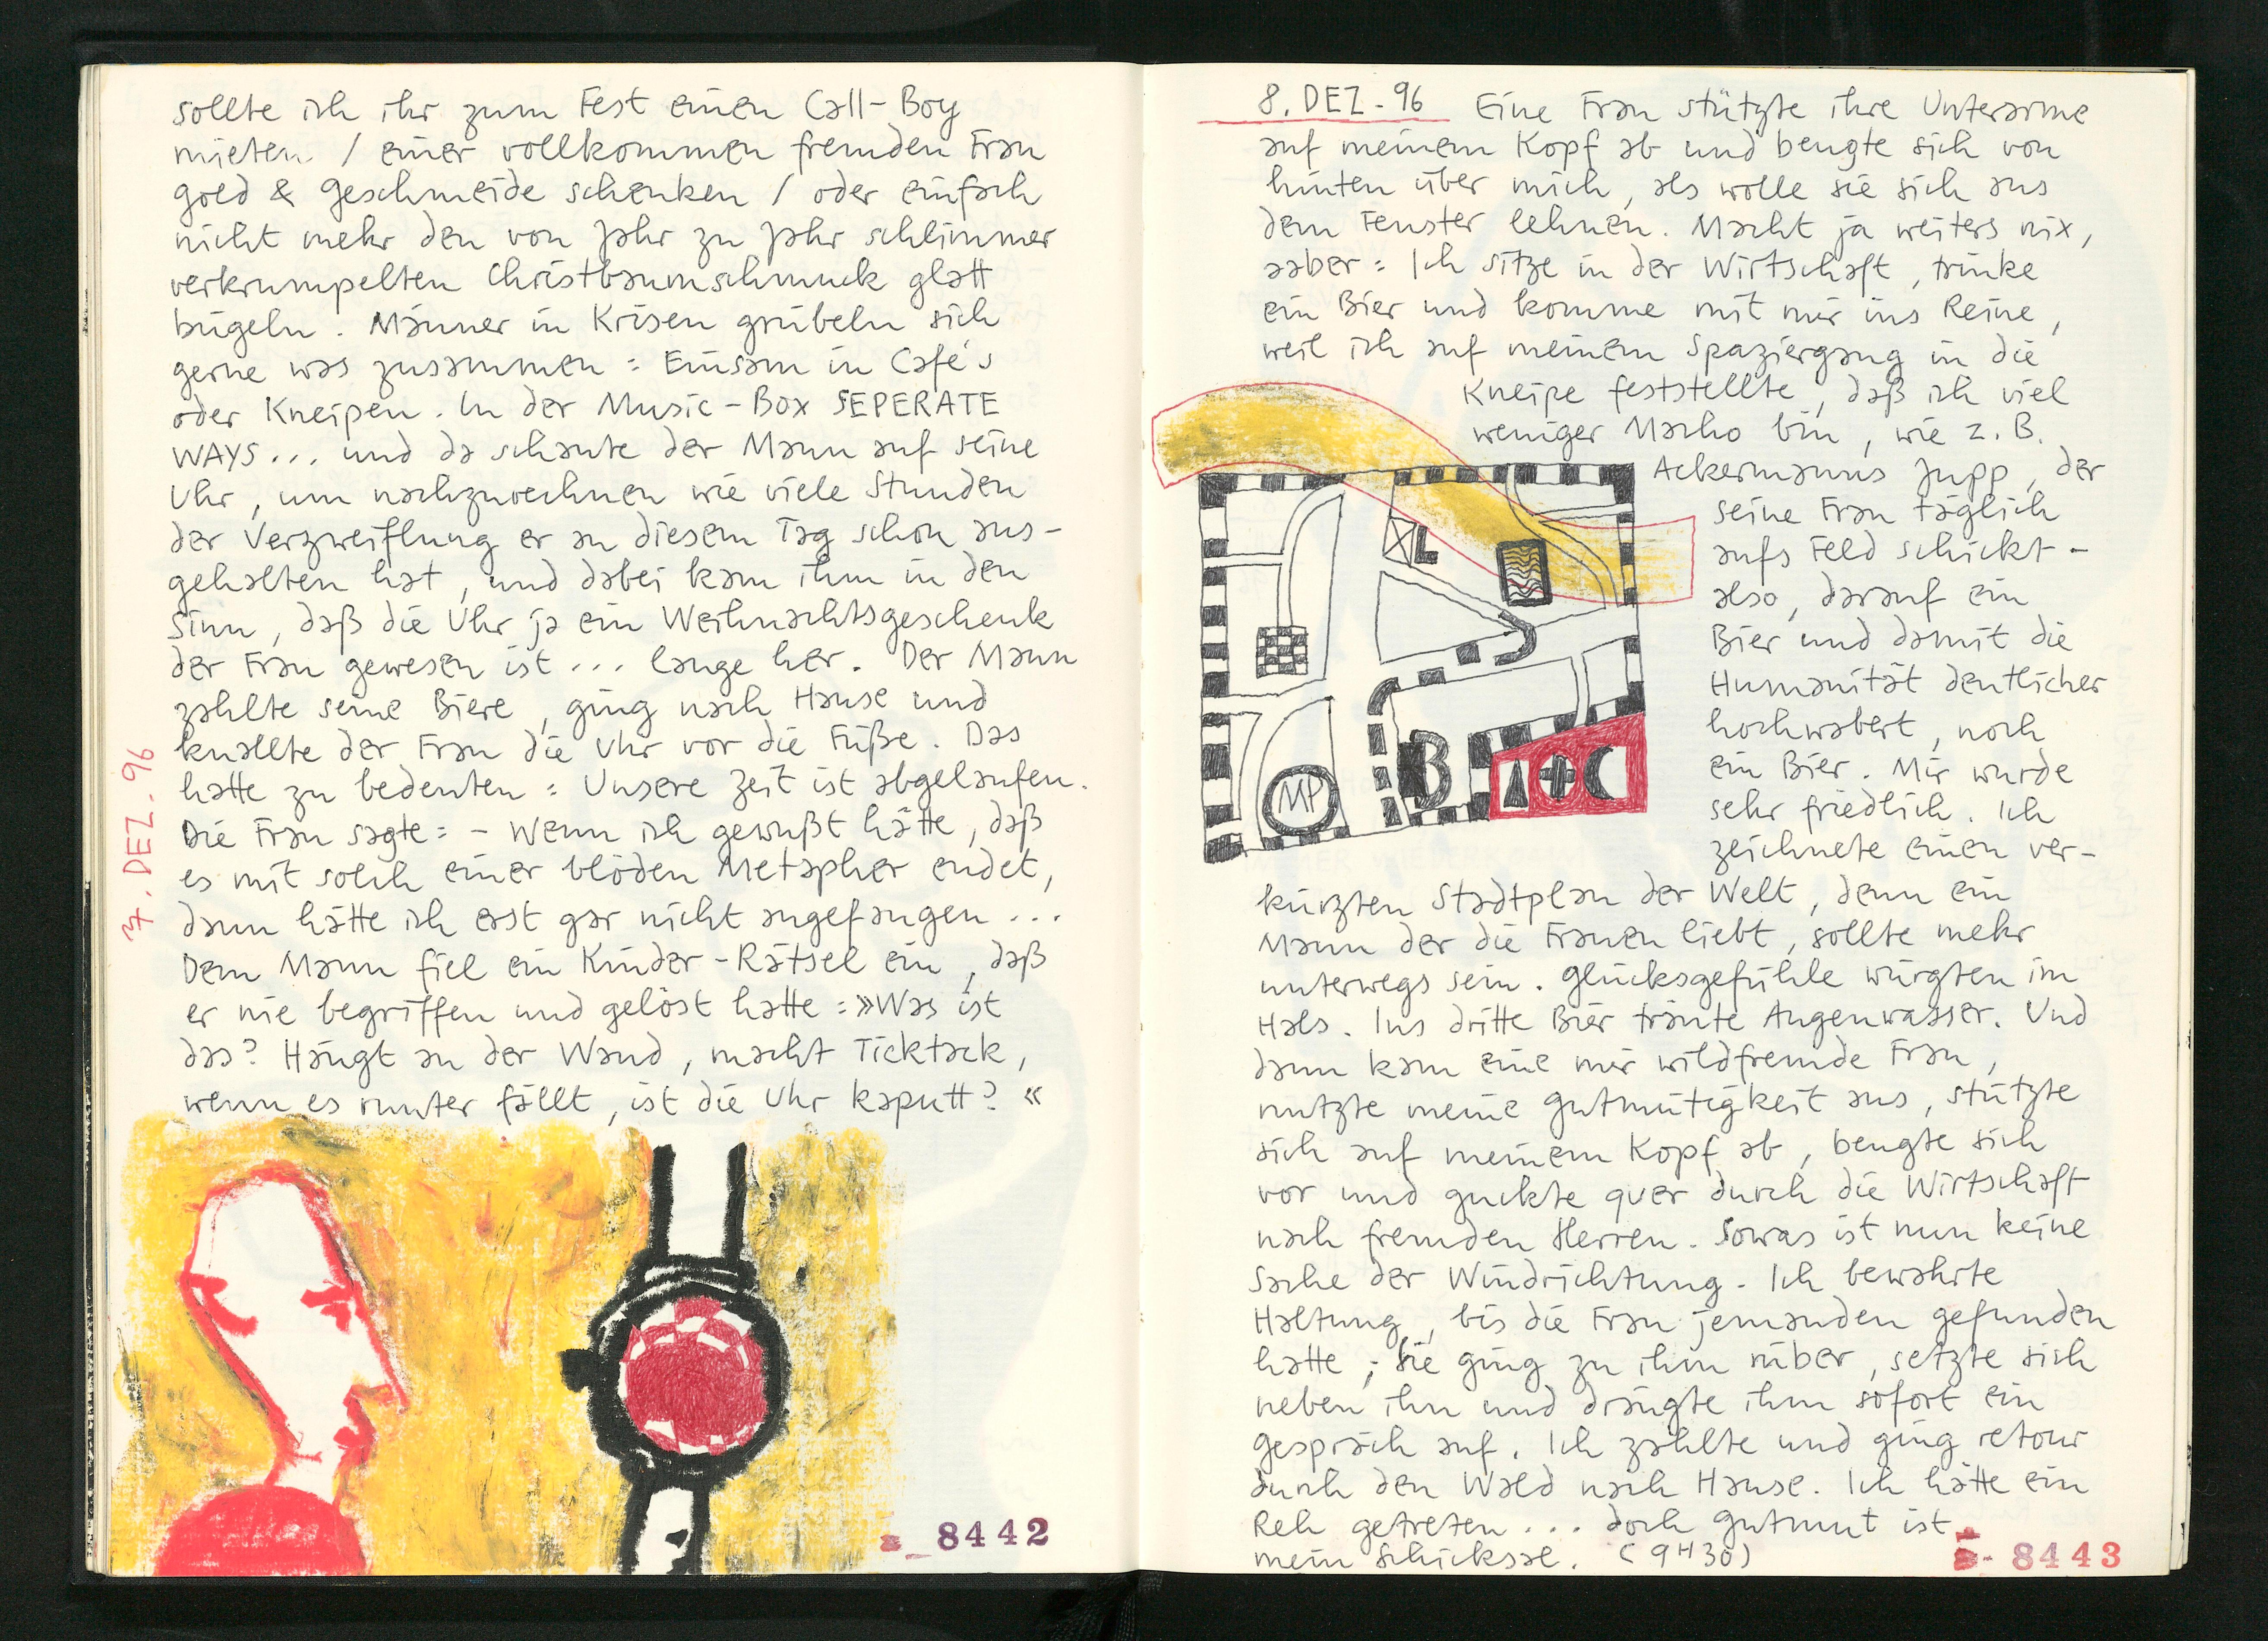 sollte ich ihr zum Fest einen Call-Boy
mieten / einer vollkommen fremden Frau
Gold & Geschmeide schenken / oder einfach
nicht mehr den von Jahr zu Jahr schlimmer
verkrumpelten Christbaumschmuck glatt
bügeln. Männer in Krisen grübeln sich
gerne was zusammen: Einsam in Café's
oder Kneipen. In der Music-Box SEPERATE
WAYS... und da schaute der Mann auf seine
Uhr, um nachzurechnen wie viele Stunden
der Verzweiflung er an diesem Tag schon aus-
gehalten hat, und dabei kam ihm in den
Sinn, daß die Uhr ja ein Weihnachtsgeschenk
der Frau gewesen ist... lange her. Der Mann
zahlte seine Biere, ging nach Hause und
knallte der Frau die Uhr vor die Füße. Das
hatte zu bedeuten: Unsere Zeit ist abgelaufen.
Die Frau sagte: - Wenn ich gewußt hätte, daß
es mit solch einer blöden Metapher endet,
dann hätte ich erst gar nicht angefangen...
Dem Mann fiel ein Kinder-Rätsel ein, daß
er nie begriffen und gelöst hatte: »Was ist
das? Hängt an der Wand, macht Ticktack,
wenn es runter fällt, ist die Uhr kaputt?«
7. DEZ. 96
8442
8. DEZ. 96 Eine Frau stützte ihre Unterarme
auf meinem Kopf ab und beugte sich von
hinten über mich, als wolle sie sich aus
dem Fenster lehnen. Macht ja weiters nix,
aaber: Ich sitze in der Wirtschaft, trinke
ein Bier und komme mit mir ins Reine,
weil ich auf meinem Spaziergang in die
Kneipe feststellte, daß ich viel
weniger Macho bin, wie z. B.
Ackermanns Jupp, der
seine Frau täglich
aufs Feld schickt -
also, darauf ein
Bier und damit die
Humanität deutlicher
hochwabert, noch
ein Bier. Mir wurde
sehr friedlich. Ich
zeichnete einen ver-
kürzten Stadtplan der Welt, denn ein
Mann der die Frauen liebt, sollte mehr
unterwegs sein. Glücksgefühle würgten im
Hals. Ins dritte Bier tränte Augenwasser. Und
dann kam eine mir wildfremde Frau,
nutzte meine Gutmütigkeit aus, stützte
sich auf meinem Kopf ab, beugte sich
vor und guckte quer durch die Wirtschaft
nach fremden Herren. Sowas ist nun keine
Sache der Windrichtung. Ich bewahrte
Haltung, bis die Frau jemanden gefunden
hatte; sie ging zu ihm rüber, setzte sich
neben ihn und drängte ihm sofort ein
Gespräch auf. Ich zahlte und ging retour
durch den Wald nach Hause. Ich hätte ein
Reh getreten... doch Gutmut ist
mein Schicksal. (9H30)
L
MP
B
8443